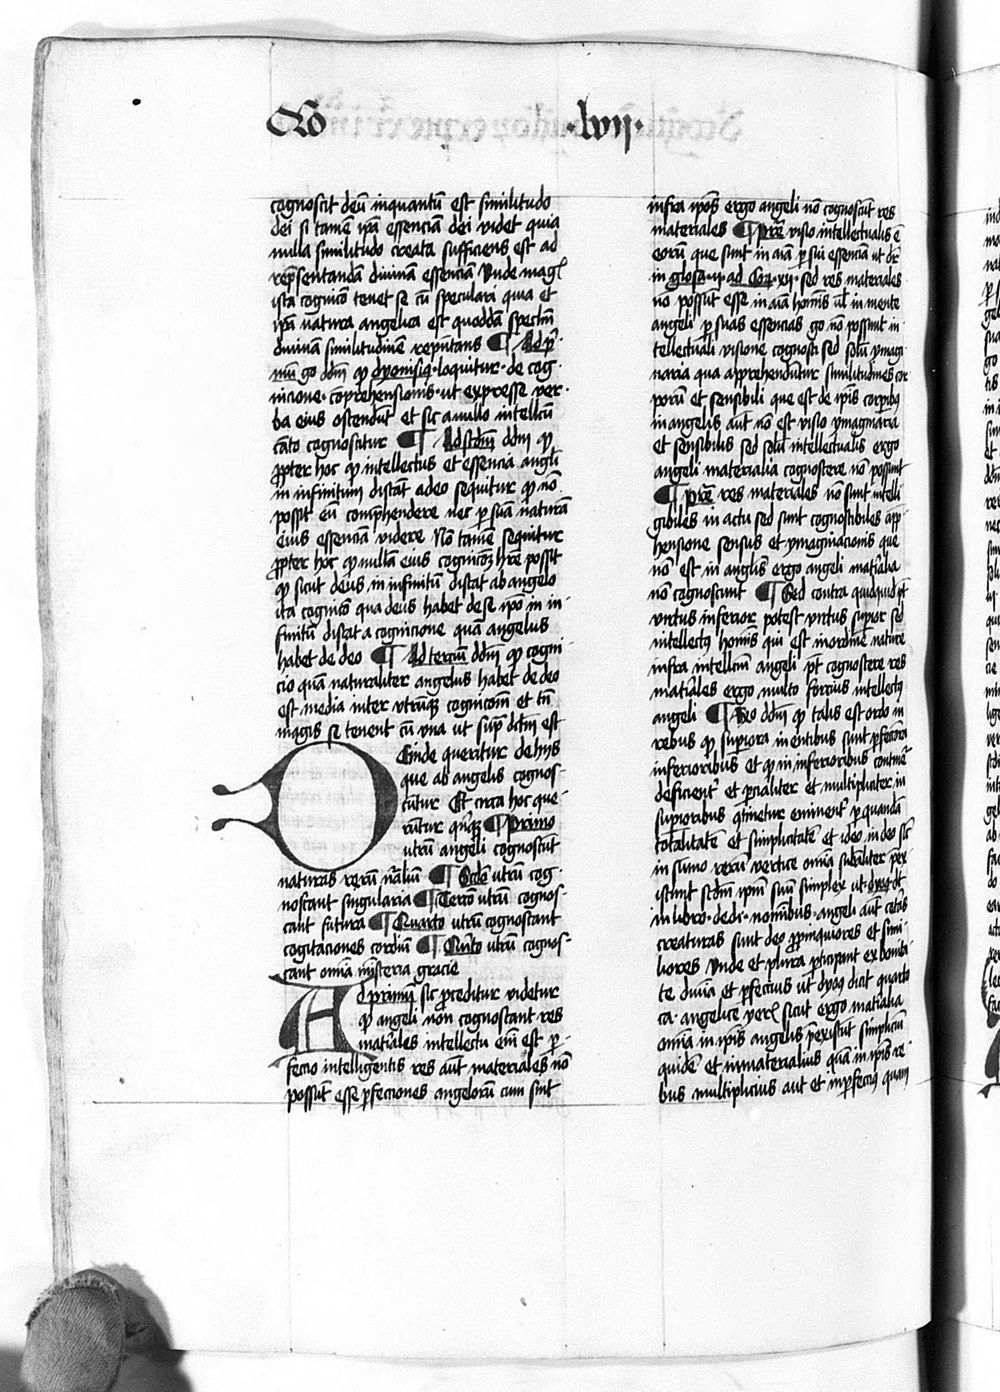 Qo ·lvij·
cognoscit deū inquantū est similitudo
dei si tamē ipā essenciā dei videt quia
nulla similitudo creata sufficiens est ad
rep̄sentandā diuinā essenciā Vnde magꝭ
ista cognicō tenet se cū speculari quia et
ipā natura angelica est quoddā speclm̄
diuinā similitudinē reputans ¶ Ad pͥ
mū go ddm̄ ꝙ dyonisiꝰ loquitur de cog
nicione comprehensionis ut expresse ver
ba eius ostendūt et sic a nullo intellcū
cāto cognoscitur ¶ Ad scdm̄ ddm̄ ꝙ
ꝓpter hoc ꝙ intellectus et essencia angli
in infinitum distāt a deo sequitur ꝙ nō
possit eū comp̄hendere nec ꝑ suā naturā
eius essenciā videre Nō tamē sequitur
ꝓpter hoc ꝙ nullā eius cognicoꝫ hr̄e possit
ꝙ sicut deus in infinitū distat ab angelo
ita cognicō quā deus habet de se ipō in in
finitū distat a cognicione quā angelus
habet de deo ¶ Ad terciū ddm̄ ꝙ cogni
cio quā naturaliter angelus habet de deo
est media inter vtrāqꝫ cognicōm et tn̄
magis se tenent cū vna ut sup̄ dc̄m est
Deinde queritur de hijs
que ab angelis cognos
cūtur Et circa hoc que
rūtur qn̄qꝫ ¶ Primo
utrū angeli cognoscūt
naturas rerū mr̄aliū ¶ Scdō utrū cog
noscant singularia ¶ Tercō utrū cognos
cant futura ¶ Quarto utrū cognoscant
cogitaciones cordiū ¶ Quīto utrū cognos
cant omīa mīsteria gracie
Ad primū sic ꝓceditur videtur
ꝙ angeli nōn cognoscant res
materiales intellectū em̄ est ꝑ
fectio intelligentis res aūt materiales nō
possūt esse ꝑfectiones angelorū cum sint
infra ipōs ergo angeli nō cognoscūt res
materiales ¶ Pre visio intellectualis ē
eorū que sunt in aīa ꝑ sui essenciā ut dr̄
in glosa ij ad Cor xij sed res materiales
nō possūt esse in aīa homīs ul̄ in mente
angeli ꝑ suas essencias go nō possunt in
tellectuali visione cognosci sed solū ymagi
naria qua apprehendūtur similitudines cor
porū et sensibili que est de ipīs corꝑibꝰ
in angelis aūt nō est visio ymaginaria
et sensibilis sed solū intellectualis ergo
angeli materialia cognoscere nō possunt
¶ Pre res materiales nō sunt intelli
gibiles in actu sed sunt cognoscibiles app̄
hensione sensus et ymaginacionis que
nō est in anglis ergo angeli mat̄ialia
nō cognoscunt ¶ Sed contra quicquid pt̄
virtus inferior potest virtus suꝑior sed
intellectꝰ homīs qui est in ordine nature
infra intellcūm angeli pt̄ cognoscere res
mat̄iales ergo multo forcius intellectꝰ
angeli ¶ Rō ddm̄ ꝙ talis est ordo in
rebus ꝙ suꝑiora in entibus sunt ꝑfectiora
inferioribus et ꝙ in inferioribus continet̄
deficient̄ et ꝑcialiter et multipliciter in
suꝑioribus ꝯtinetur eminent̄ ꝑ quandā
totalitatē et simplicitatē et ideo in deo sic̄
in sūmo rerū vertice omīa subāliter p̄ex
istūt scdm̄ ipm̄ suū simplex ut dyoꝰ dt̄
in libro de di nomībus angeli aūt cetās
creaturas sunt deo ꝓpinquiores et simi
liores vnde et plura ꝑticipant ex bonita
te diuīa et ꝑfectius ut dyoꝰ dicit quarto
ca angelice yerˢ sicut ergo mat̄ialia
omīa in ipīs angelis p̄existūt simpliciꝰ
quidē et inmaterialius quā in ipīs re
bus multiplicius aūt et inꝑfectiꝰ quam